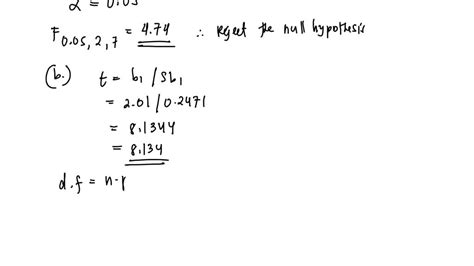 α = 0.05
F0.05, 2, 7 = 4.74 ∴ reject the null hypothesis
(b.) t = b1 / Sb1
= 2.01 / 0.2471
= 8.1344
= 8.134
d.f = n-p